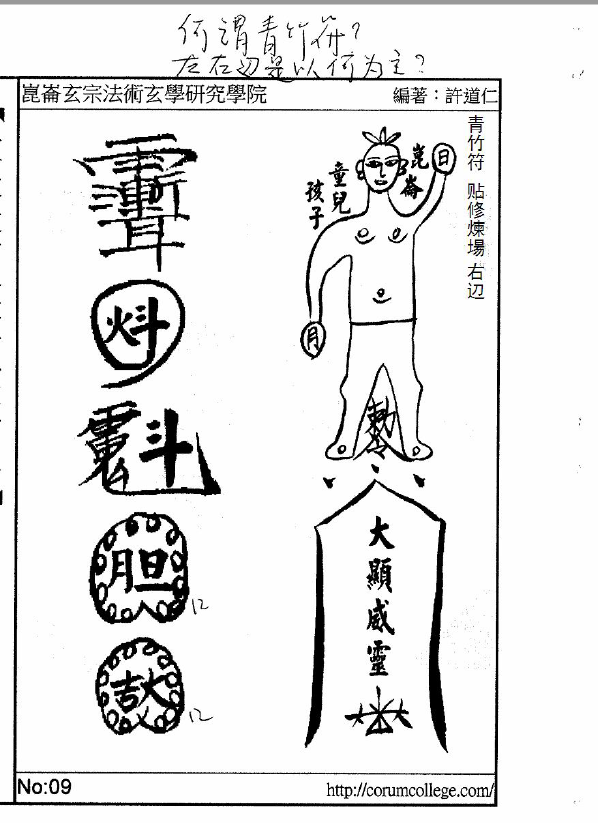 何謂青竹符?
左右边是以何为主?
崑崙玄宗法術玄學研究學院
編著:許道仁
青竹符 贴修煉場 右辺
日
崑崙
童兒
孩子
月
勅令
大顯威靈
胆
12
12
No:09
http://corumcollege.com/